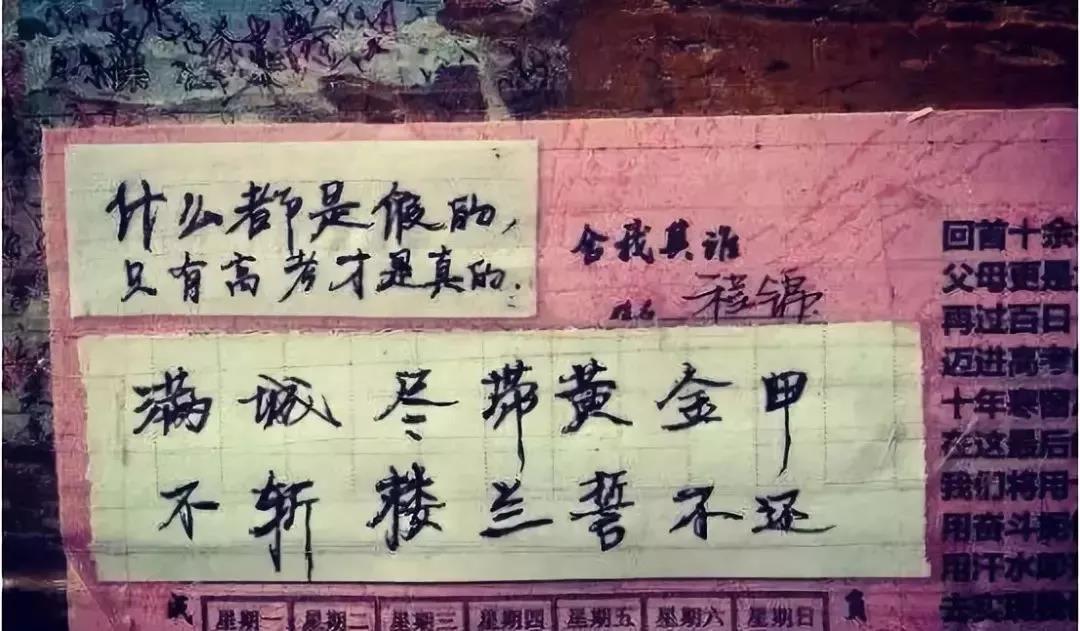 什么都是假的,
只有高考才是真的.
舍我其谁
姓名 程锦
满城尽带黄金甲
不斩楼兰誓不还
回首十余
父母更是
再过百日
迈进高考
十年寒窗
在这最后
我们将用
用奋斗
用汗水
去实现
星期一 星期二 星期三 星期四 星期五 星期六 星期日